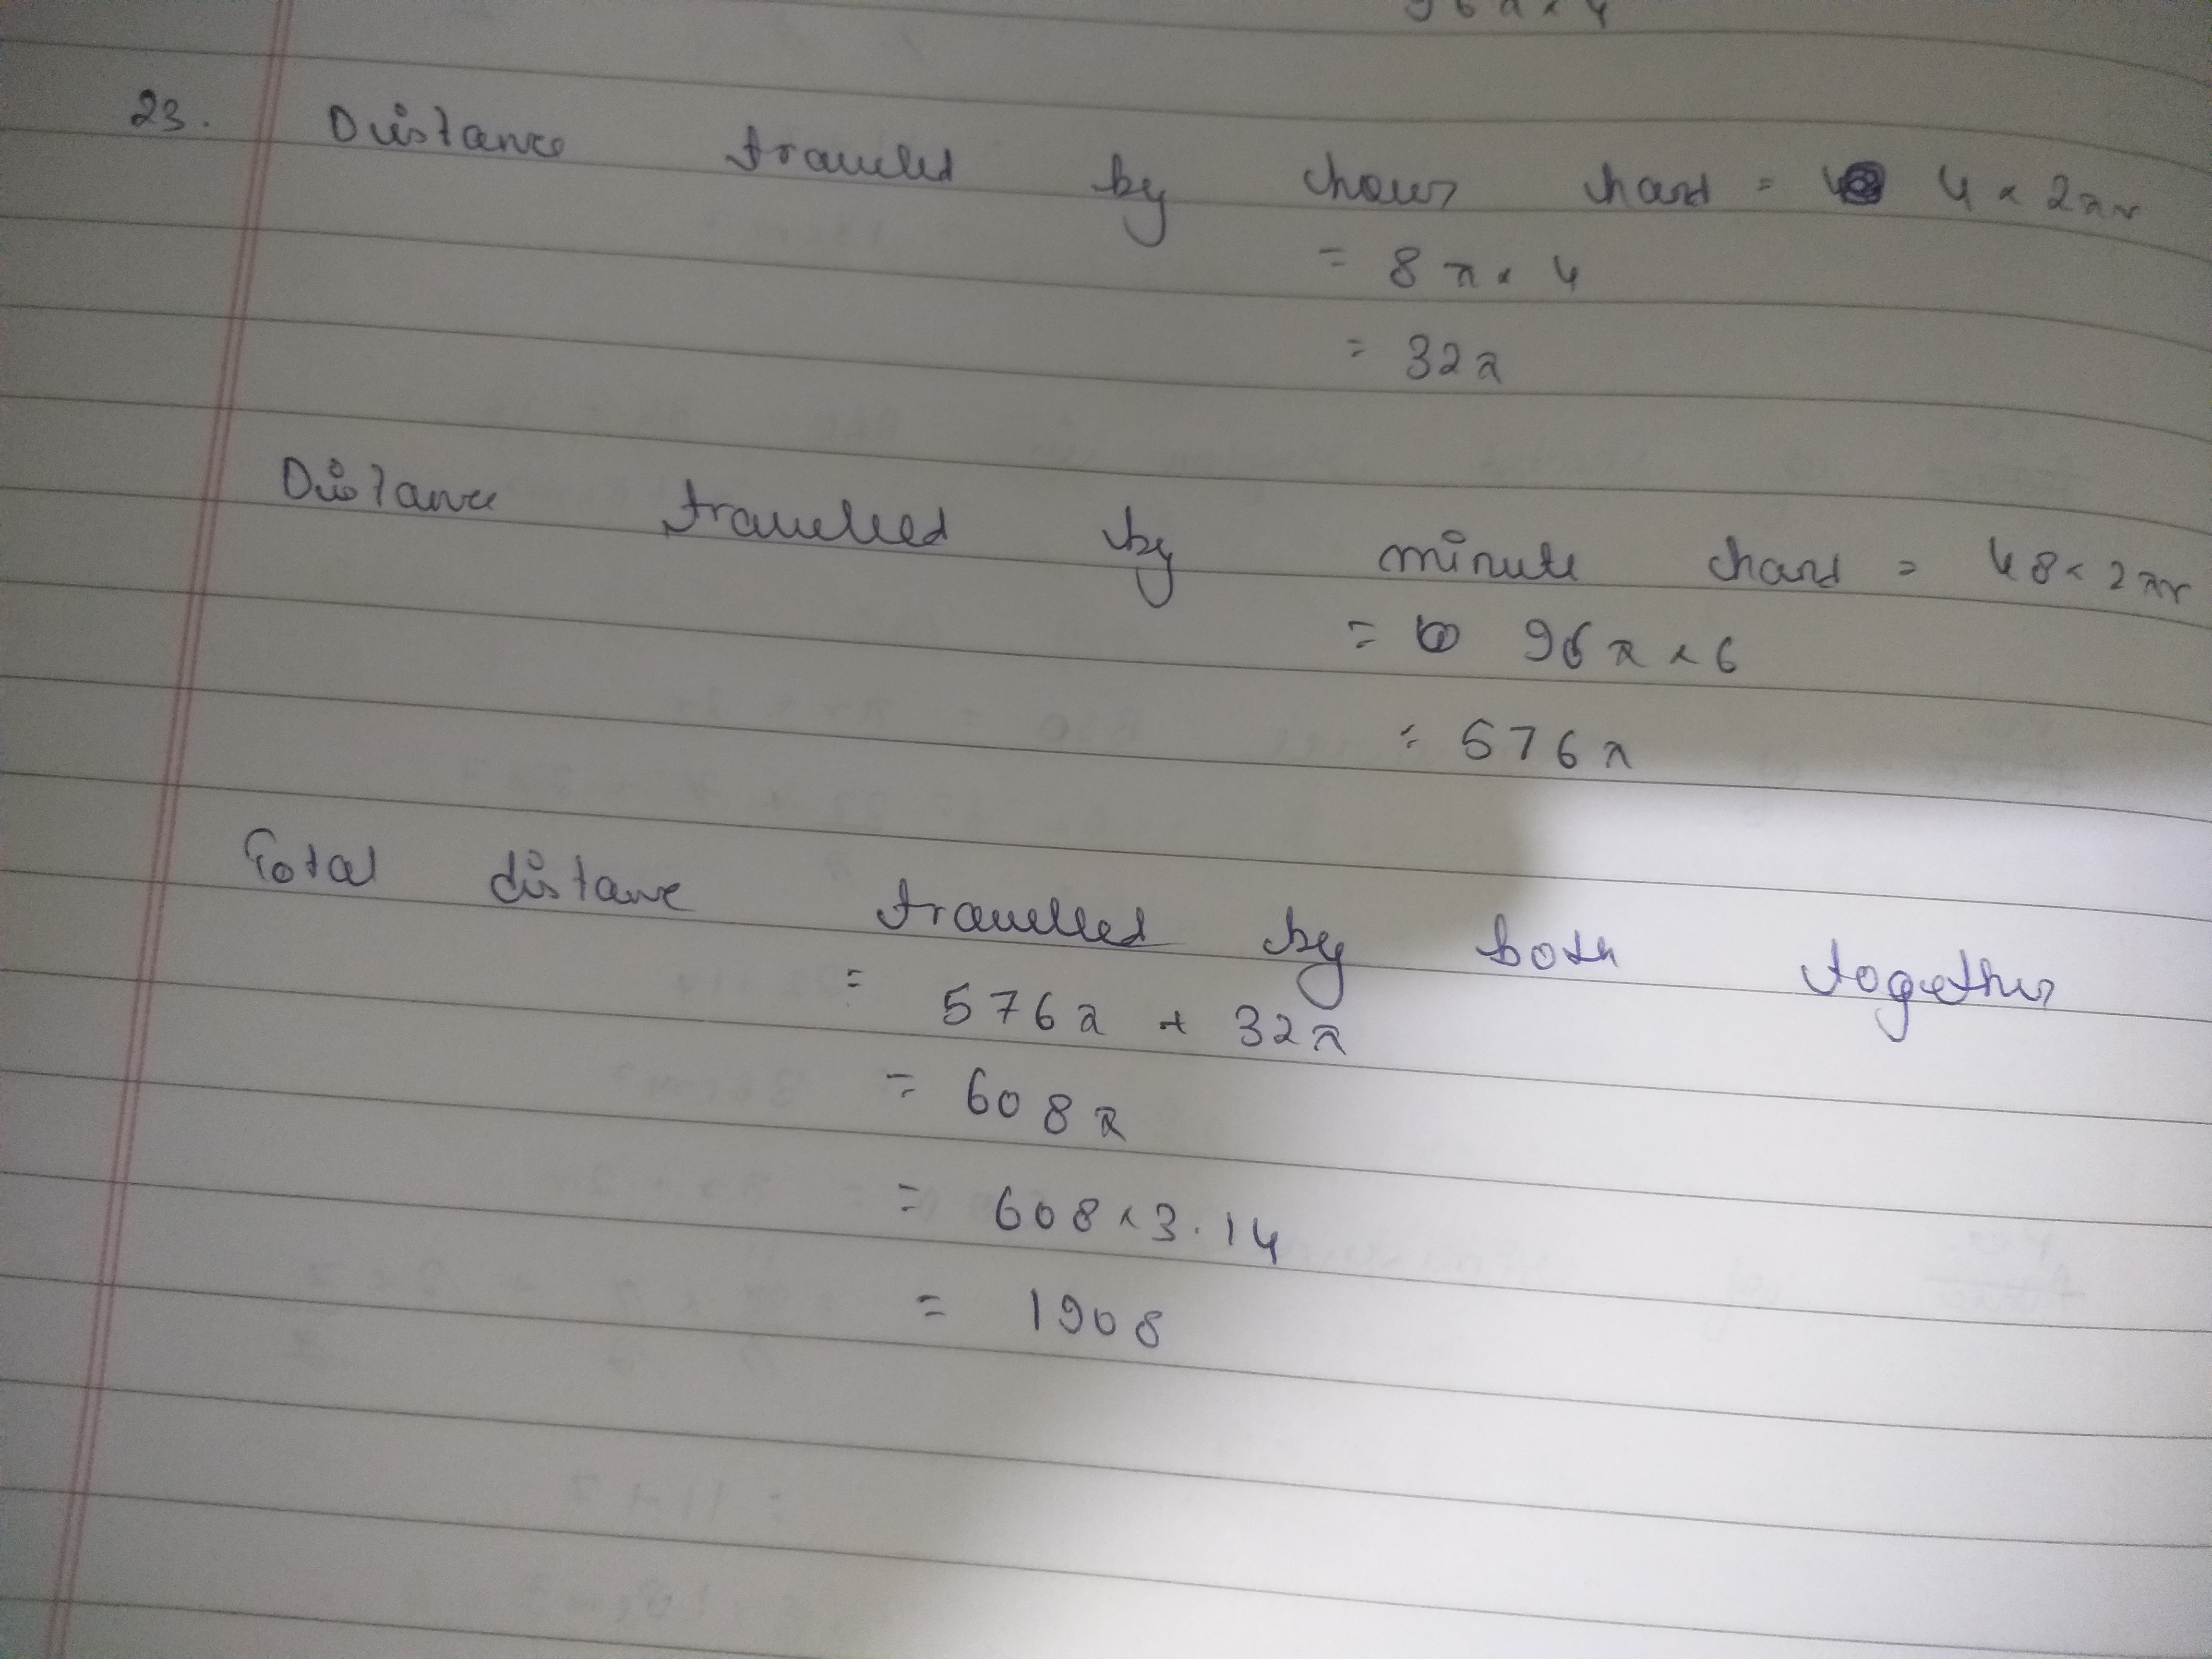 96π × 4
23. Distance travelled by hour hand = 4 × 2πr
= 8π × 4
= 32π
Distance travelled by minute hand = 48 × 2πr
= 96π × 6
= 576π
Total distance travelled by both together
= 576π + 32π
= 608π
= 608 × 3.14
= 1908